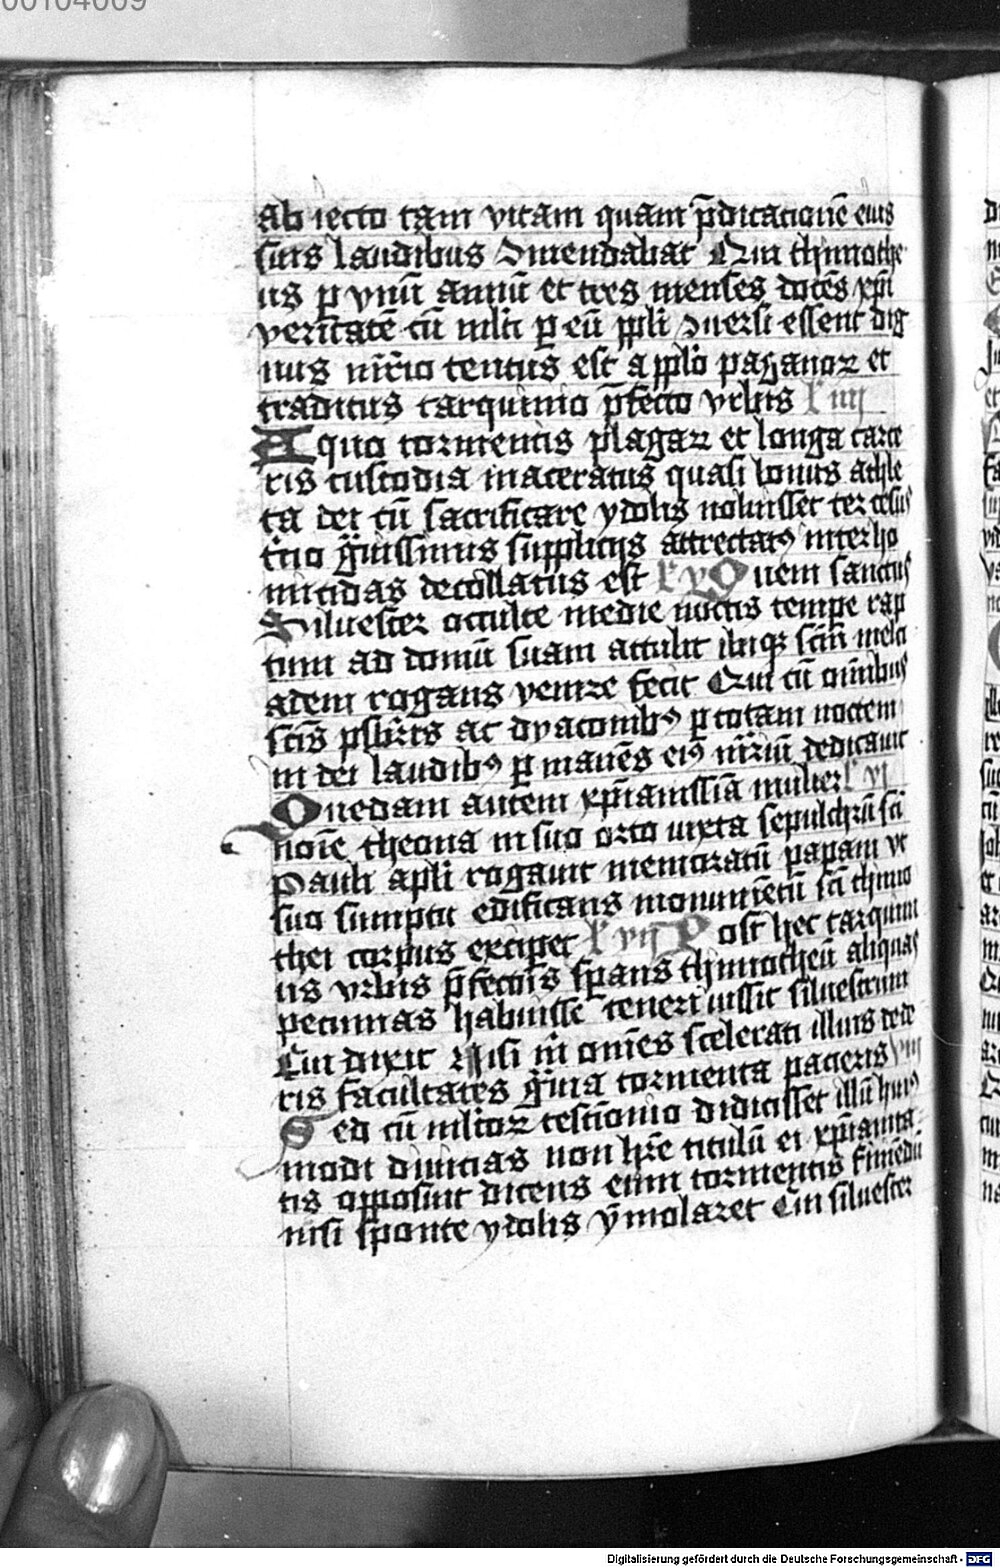 00104009
ab iecto tam vitam quam p̄dicacionē eius
suis laudibus ꝯmendabat Qui thimothe
us ꝑ vnū annū et tres menses docēs xp̄i
veritatē cū mlti ꝑ eū ppli ꝯuersi essent dig
nus mr̄io tentus est a pplo paganoꝝ et
traditus tarquinio p̄fecto vrbis l' iiii
A quo tormentis plagaꝝ et longa carce
ris custodia maceratus quasi bonus athle
ta dei cū sacrificare ydolis noluisset ter cesus
t'cio g̃uissimis supplicijs attrectatꝰ inter ho
micidas decollatus est l' v Quem sanctus
Siluester occulte medie noctis tempe rap
tum ad domū suam attulit ibiqꝫ scm̄ melci
adem rogans venire fecit Qui cū om̄ibus
scīs psbr̄is ac dyaconibꝰ ꝑ totam noctem
in dei laudibꝰ ꝑmanēs eiꝰ mr̄iū dedicauit
Quedam autem xp̄ianissīa mulier l' vi
noīe theona in suo orto iuxta sepulchrū sci
Pauli apli rogauit memoratū papam vt
suo sumptu edificans monumētū sci thimo
thei corpus exciperet l' vii Post hec tarquini
us vrbis p̄fectus sp̄ans thimotheū aliquas
pecunias habuisse teneri iussit siluestrum
Cui dixit Nisi m̄ om̄es scelerati illius dede
ris facultates g̃uia tormenta pacieris viii
Sed cū mltoꝝ testīonio didicisset illū huiꝰ
modi diuicias non hr̄e titulū ei xp̄ianita
tis opposuit dicens eum tormentis finiēdū
nisi sponte ydolis ymolaret Cui siluester
Digitalisierung gefördert durch die Deutsche Forschungsgemeinschaft - DFG